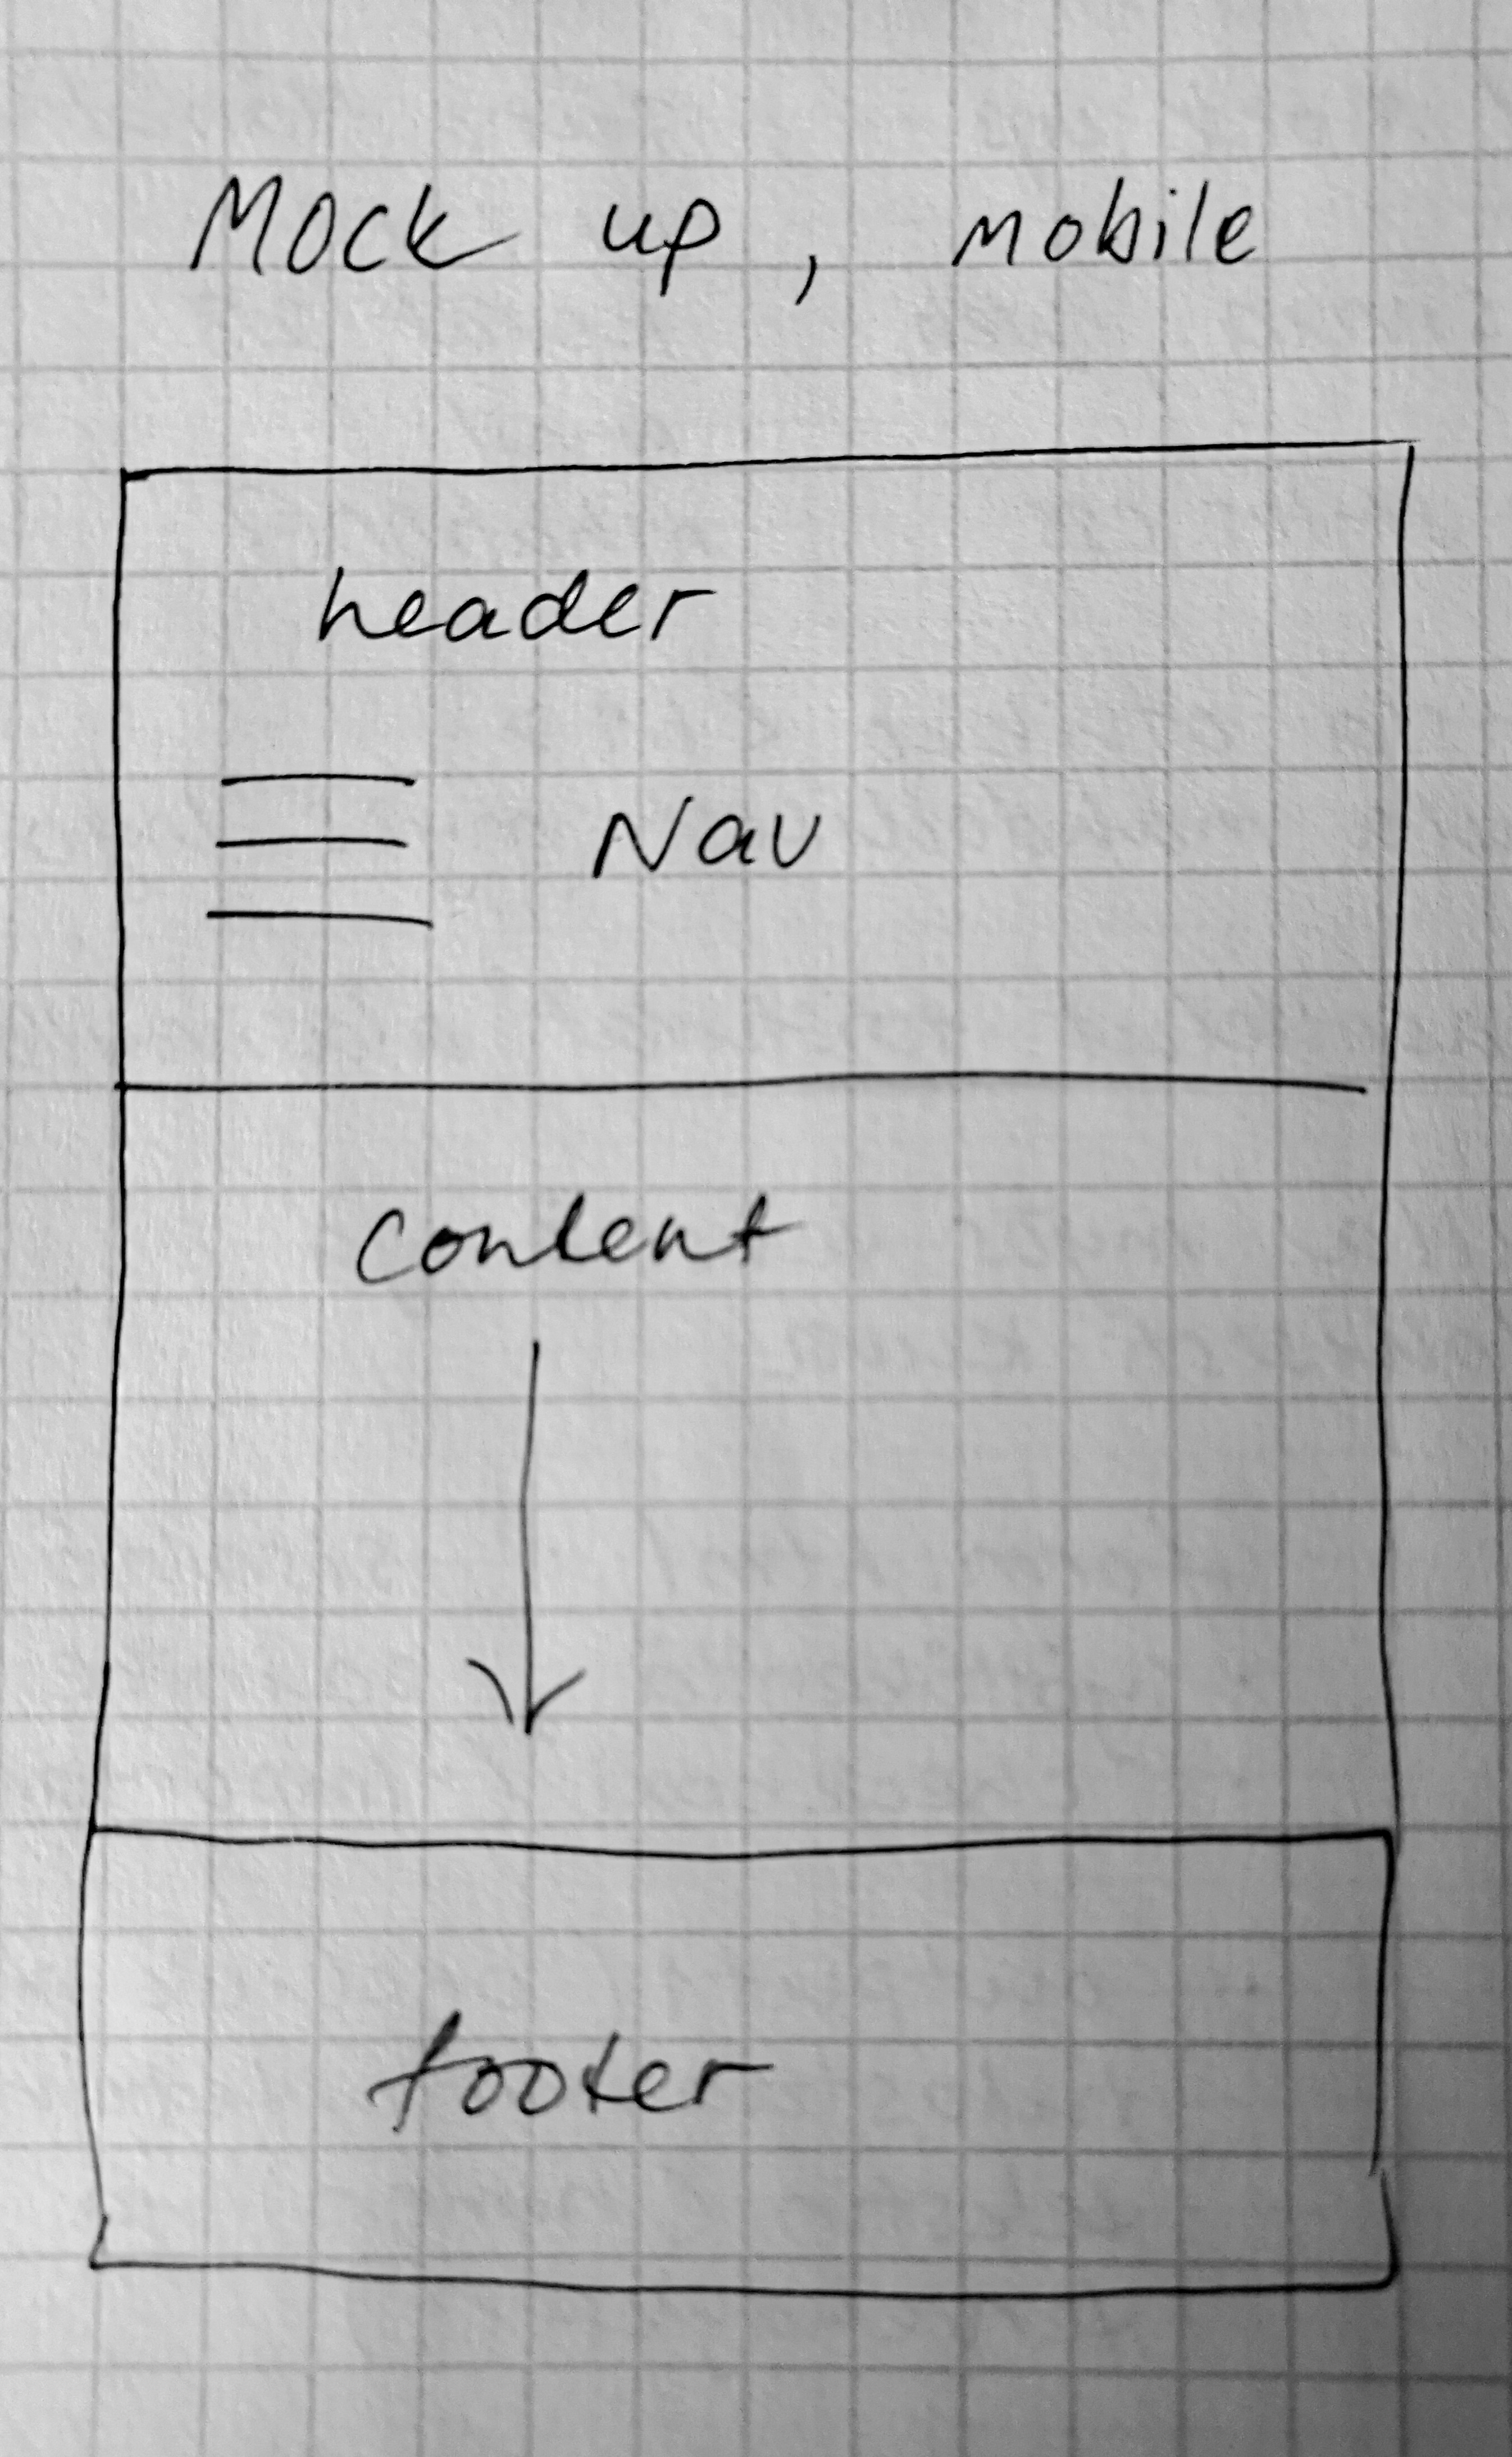 Mock up, mobile
header
Nav
content
footer